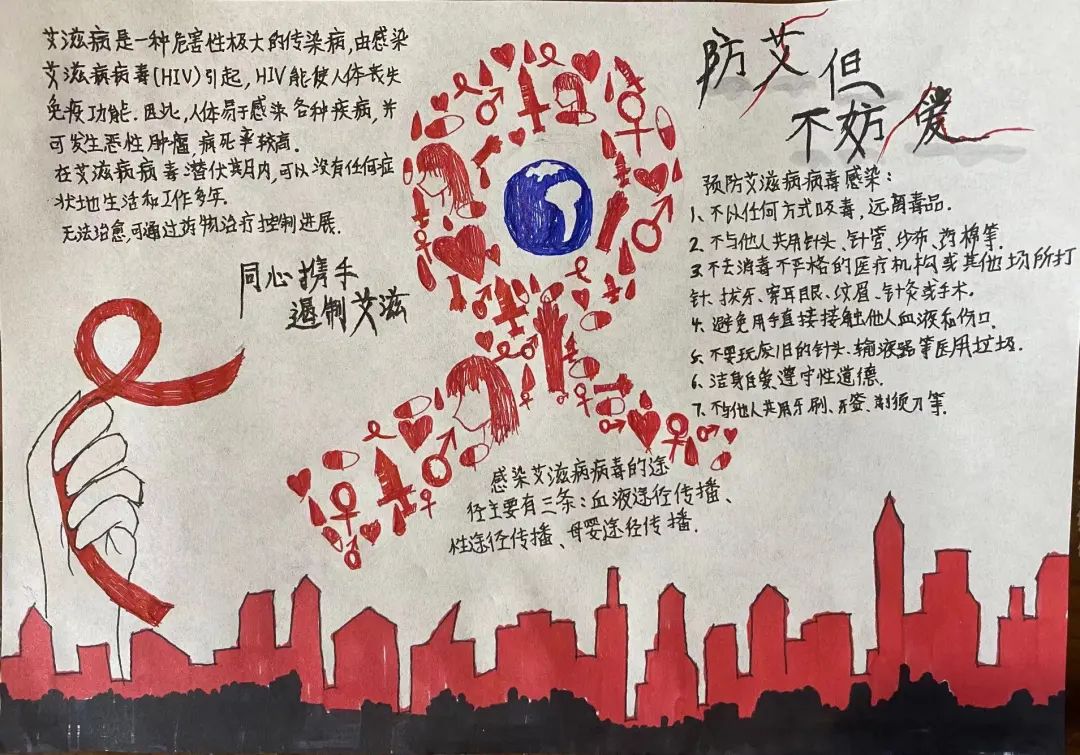 艾滋病是一种危害性极大的传染病,由感染
艾滋病病毒(HIV)引起,HIV能使人体丧失
免疫功能.因此,人体易于感染各种疾病,并
可发生恶性肿瘤,病死率较高.
在艾滋病病毒潜伏其月内,可以没有任何症
状地生活和工作多年.
无法治愈,可通过药物治疗控制进展.
同心携手
遏制艾滋
防艾但
不妨爱
预防艾滋病病毒感染:
1、不以任何方式吸毒,远离毒品.
2、不与他人共用针头、针管、纱布、药棉等.
3、不去消毒不严格的医疗机构或其他场所打
针、拔牙、穿耳眼、纹眉、针灸或手术.
4、避免用手直接接触他人血液和伤口.
5、不要玩废旧的针头、输液器等医用垃圾.
6、洁身自爱,遵守性道德.
7、不与他人共用牙刷、牙签、剃须刀等.
感染艾滋病病毒的途
径主要有三条:血液途径传播、
性途径传播、母婴途径传播.